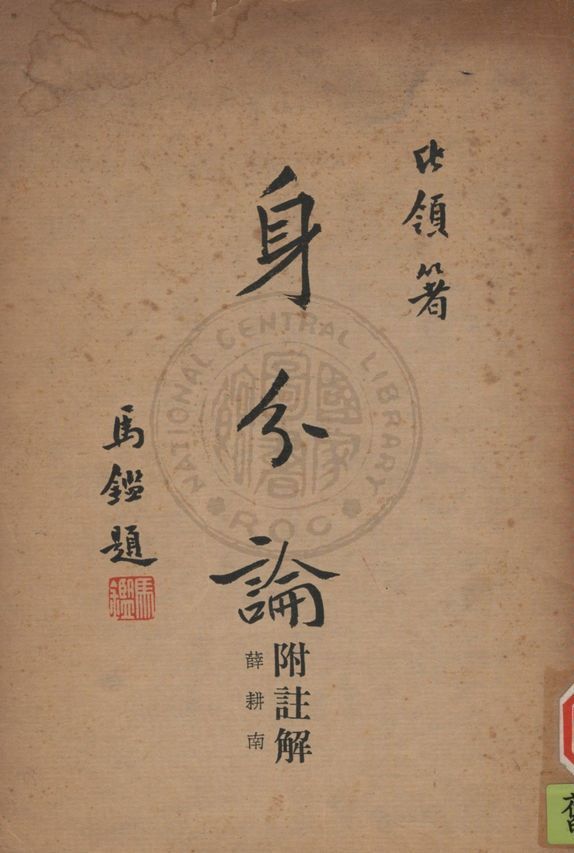 領箸
身分論
附註解
薛耕南
馬鑑題
馬鑑
NATIONAL CENTRAL LIBRARY
ROC
國家圖書館